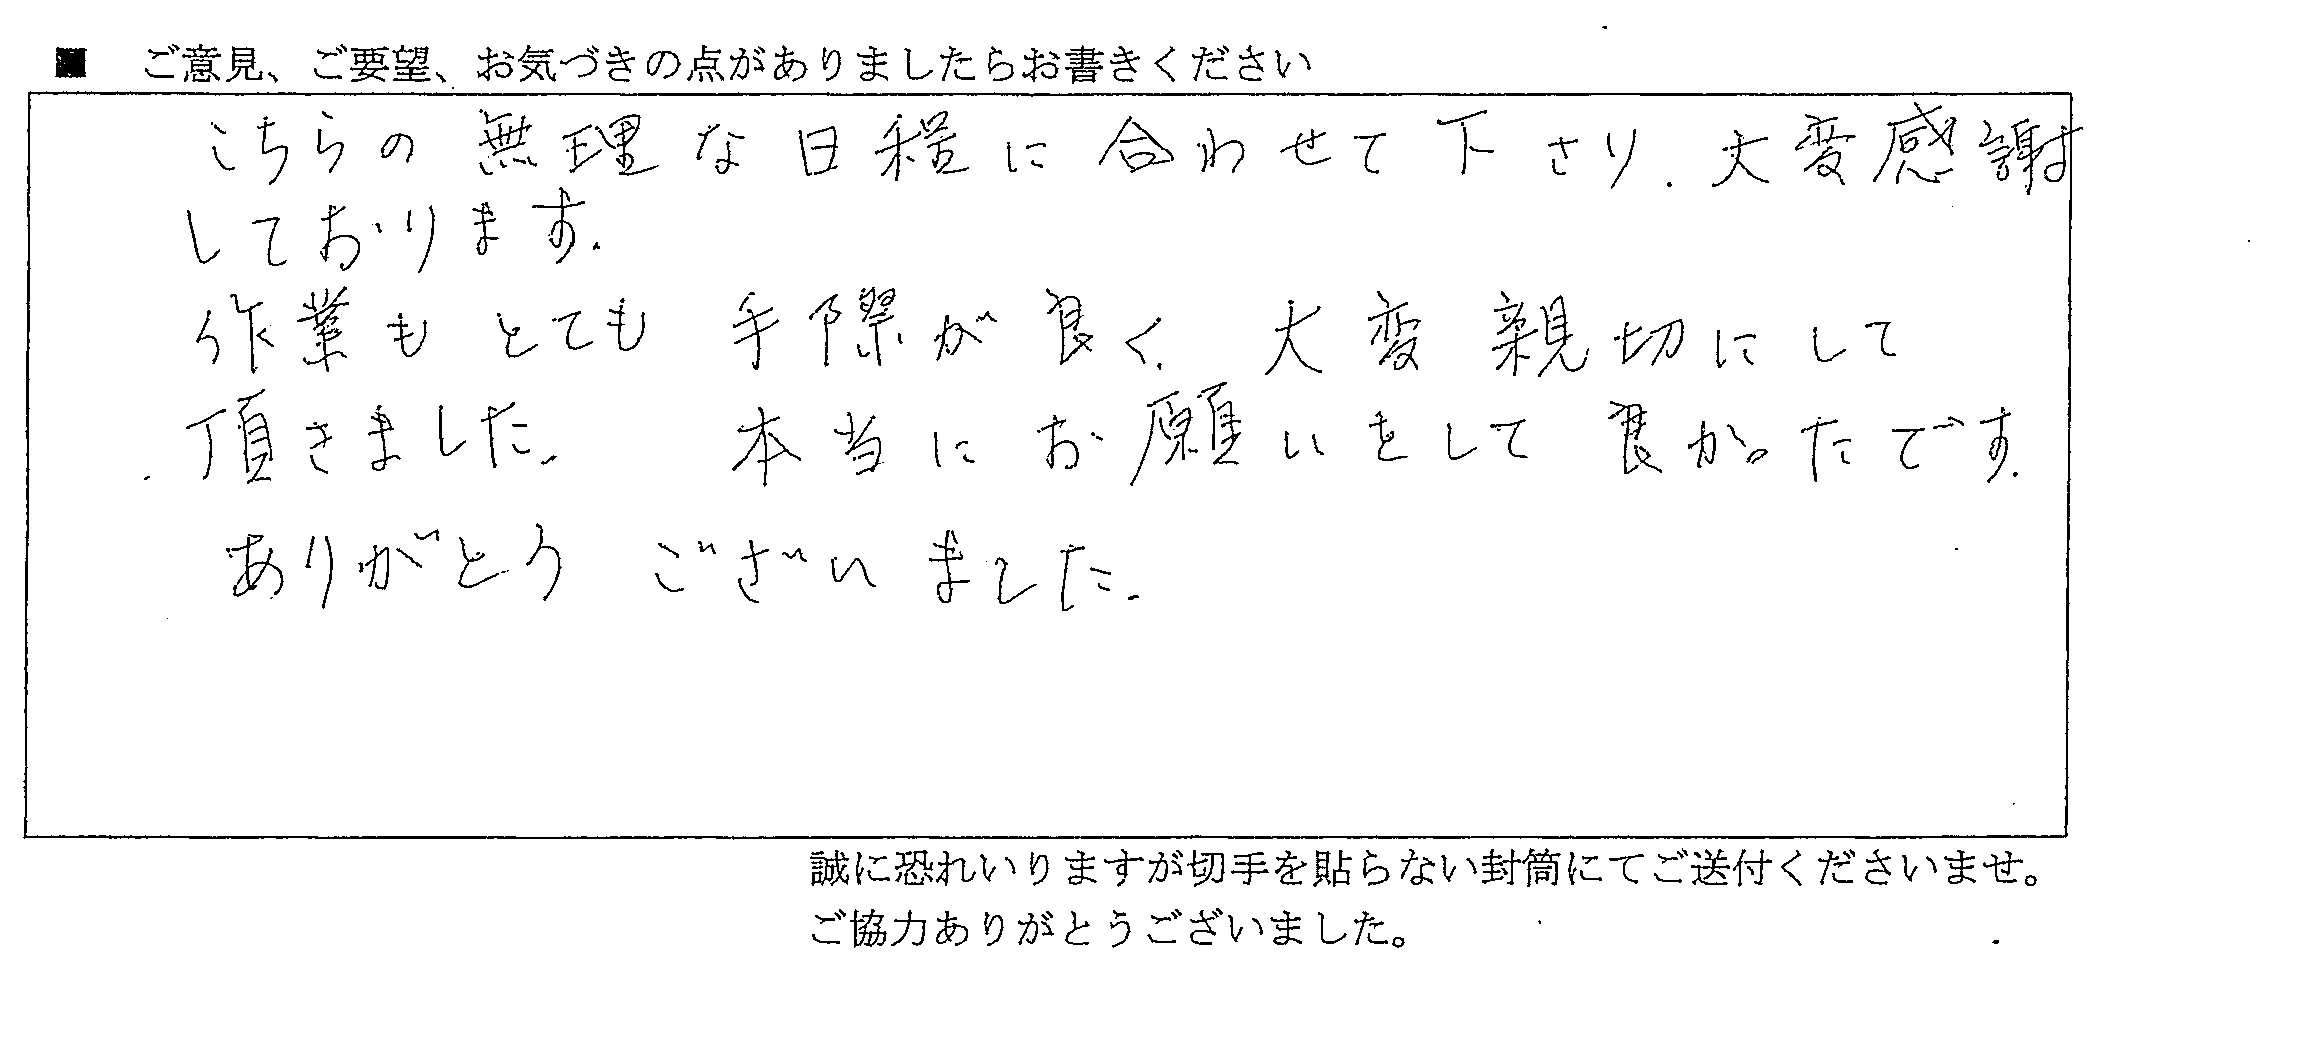 ■ ご意見、ご要望、お気づきの点がありましたらお書きください
こちらの無理な日程に合わせて下さり、大変感謝
しております。
作業もとても手際が良く、大変親切にして
頂きました。 本当にお願いをして良かったです。
ありがとうございました。
誠に恐れいりますが切手を貼らない封筒にてご送付くださいませ。
ご協力ありがとうございました。